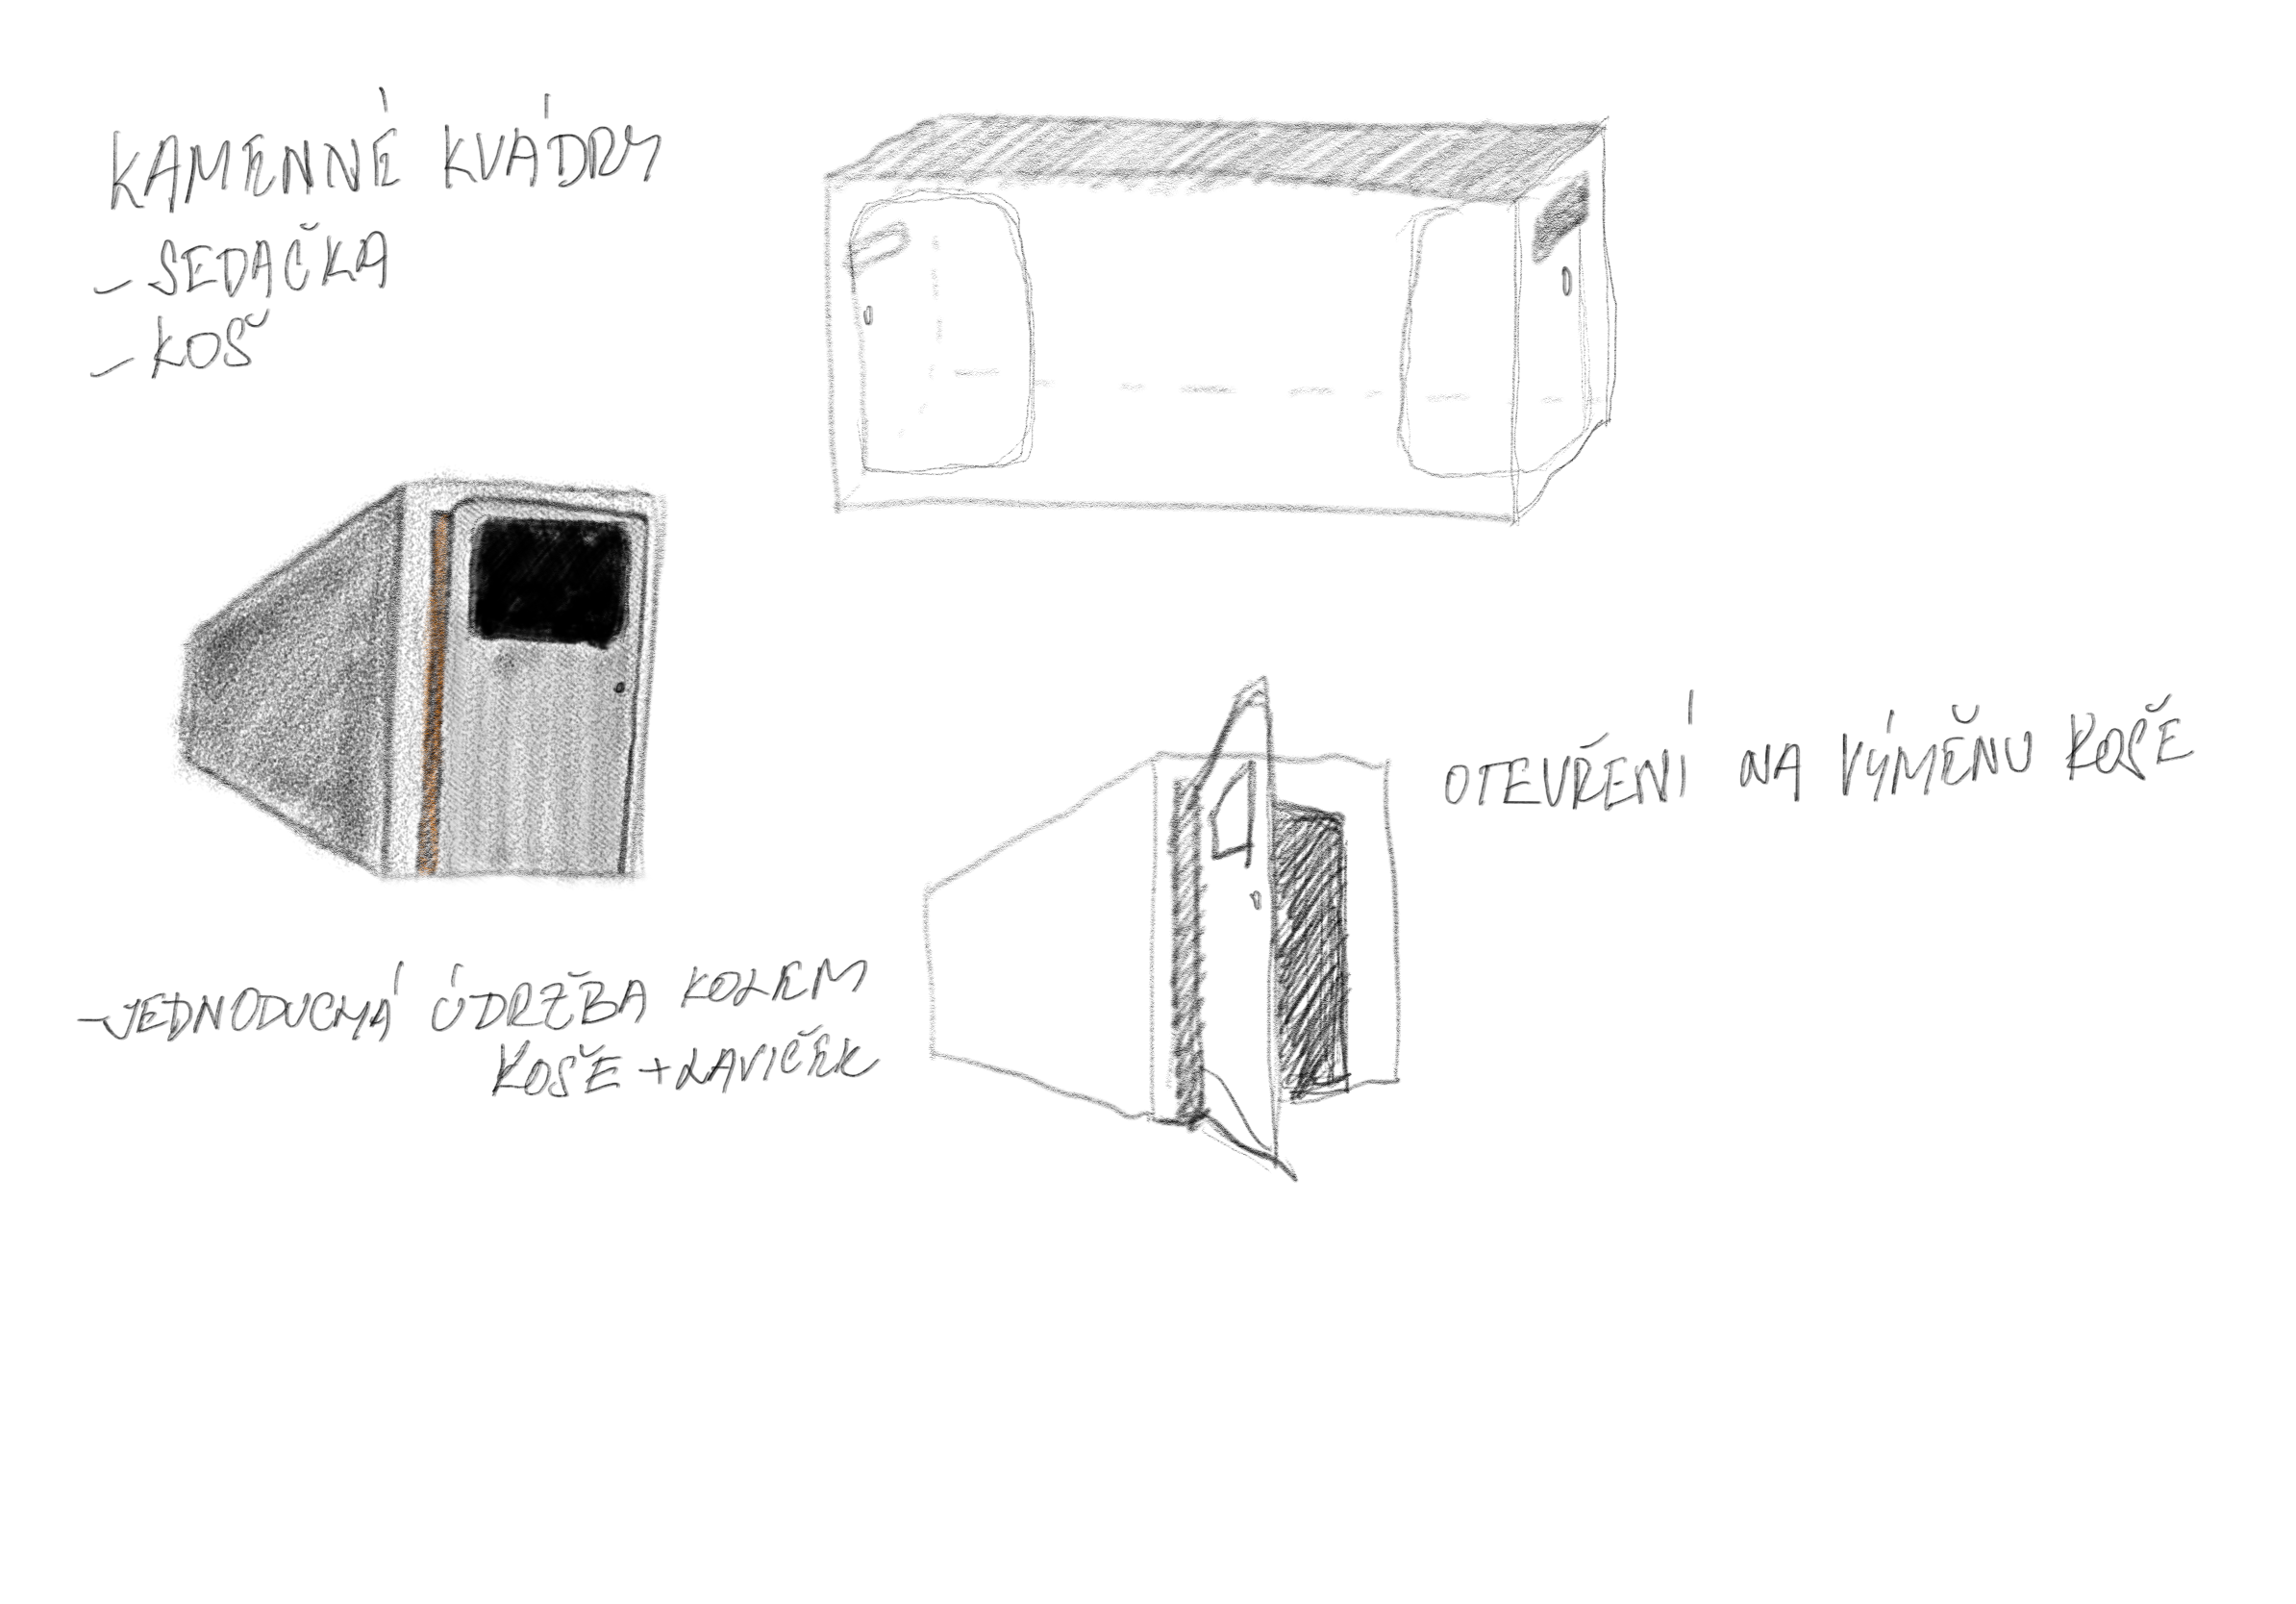 KAMENNÉ KVÁDRY
- SEDAČKA
- KOŠ
OTEVŘENÍ NA VÝMĚNU KOŠE
- JEDNODUCHÁ ÚDRŽBA KOLEM
KOŠE + LAVIČEK